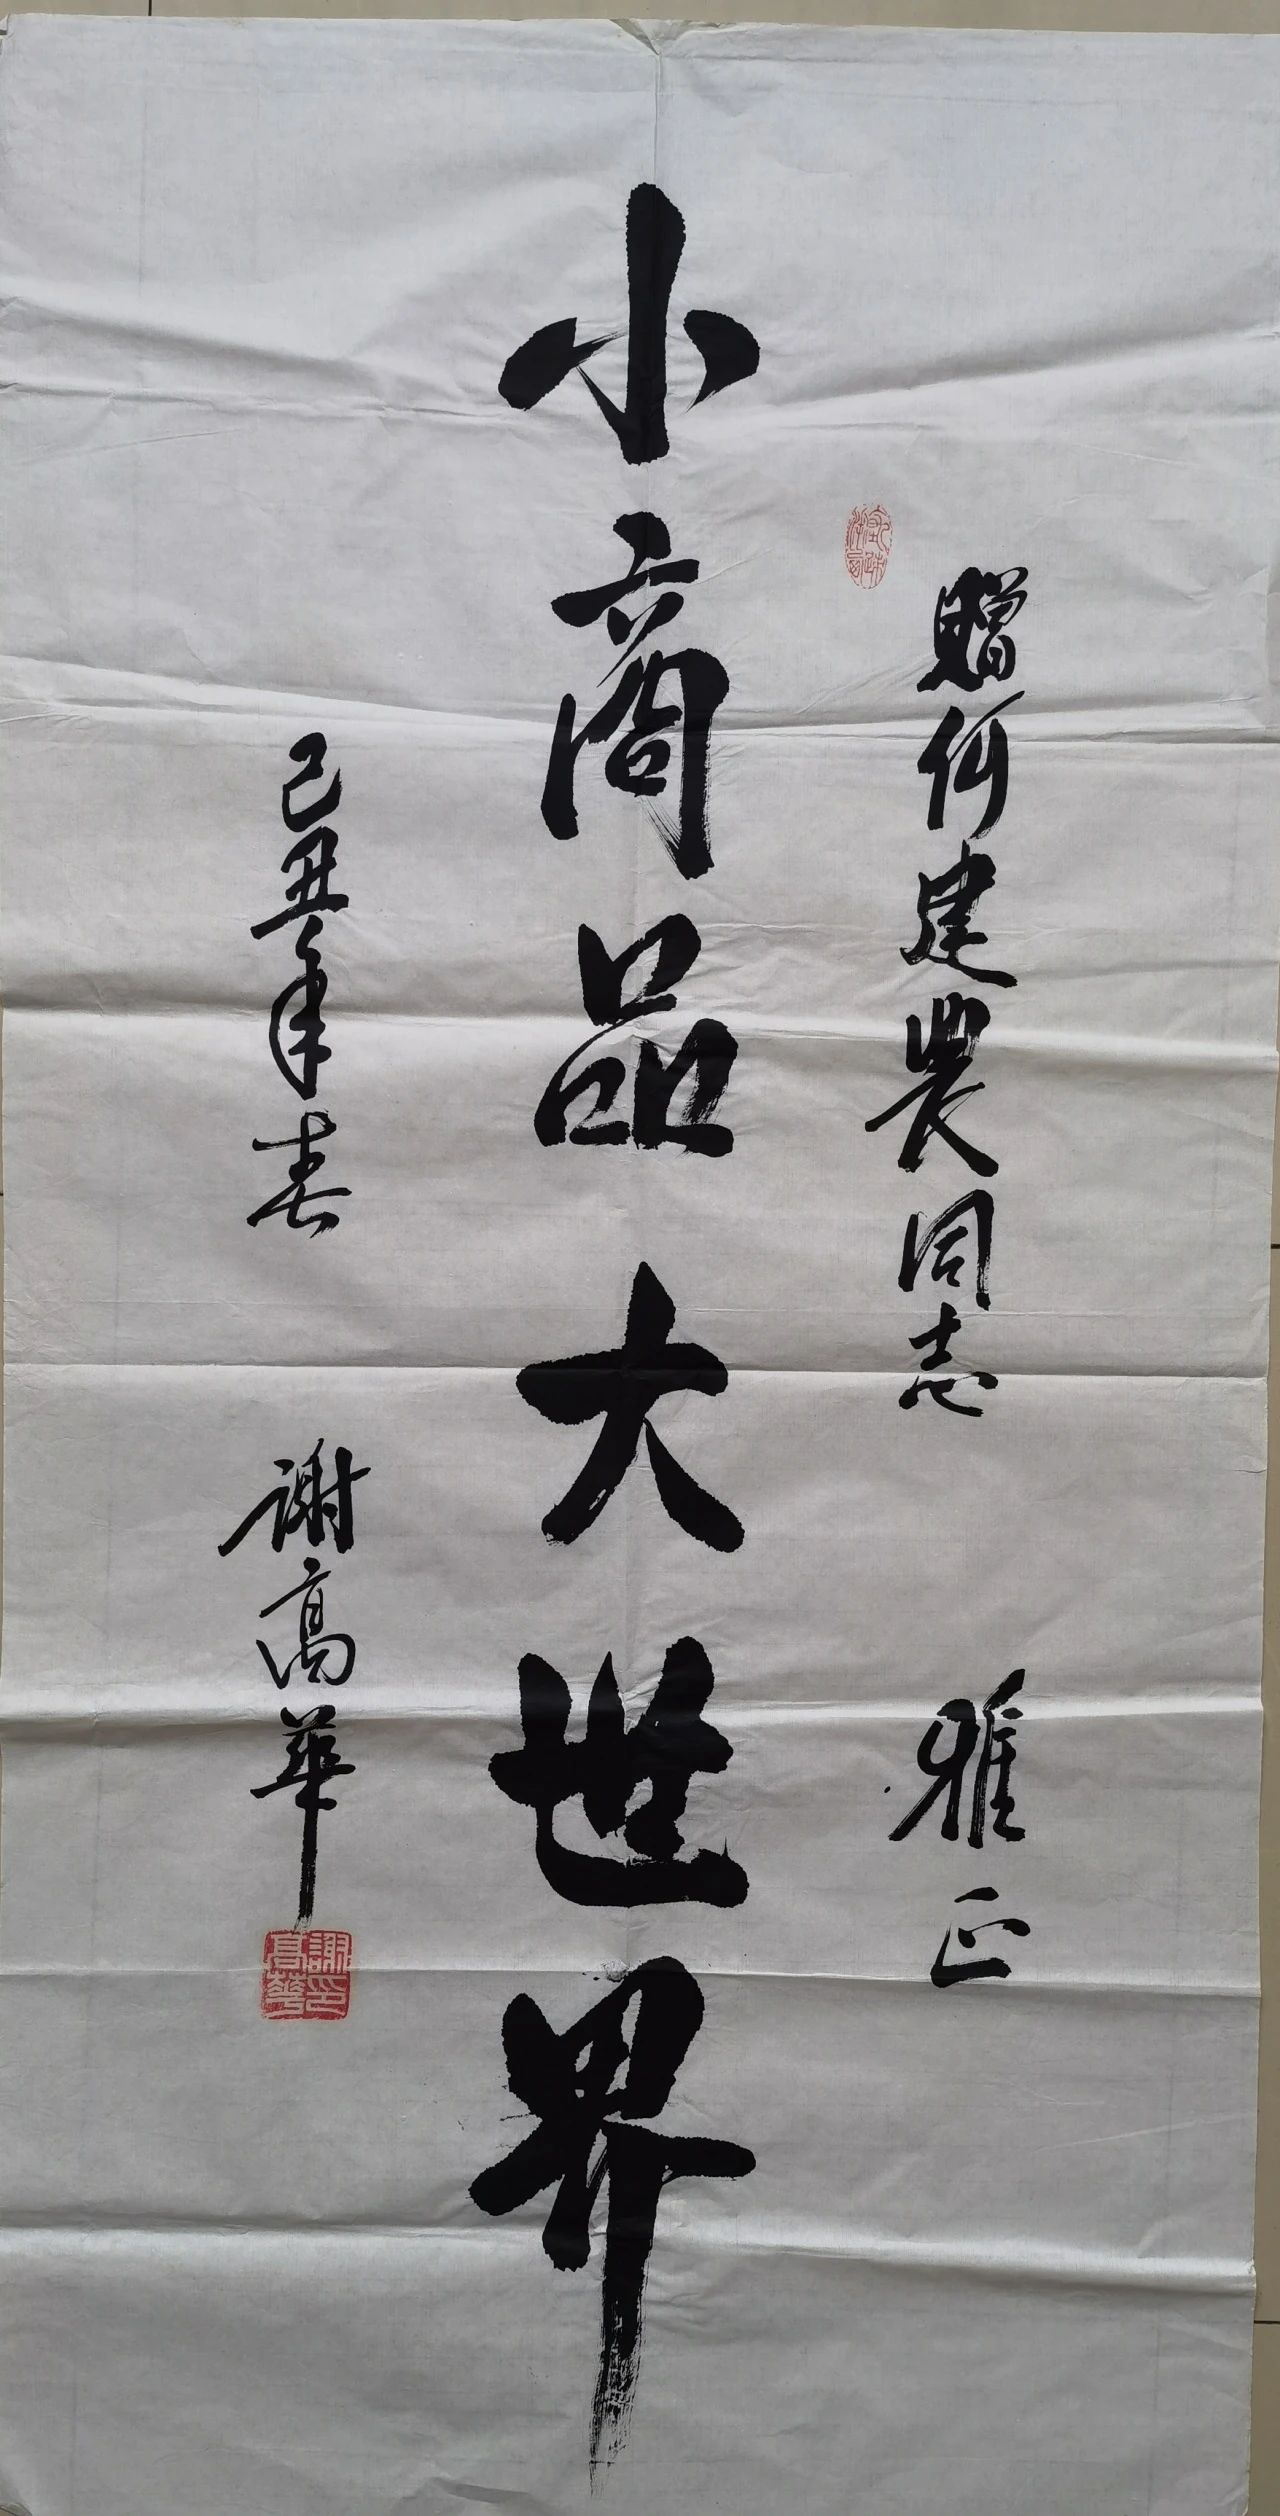 赠何建農同志 雅正
小商品大世界
己丑年春 谢高華
謝高華印